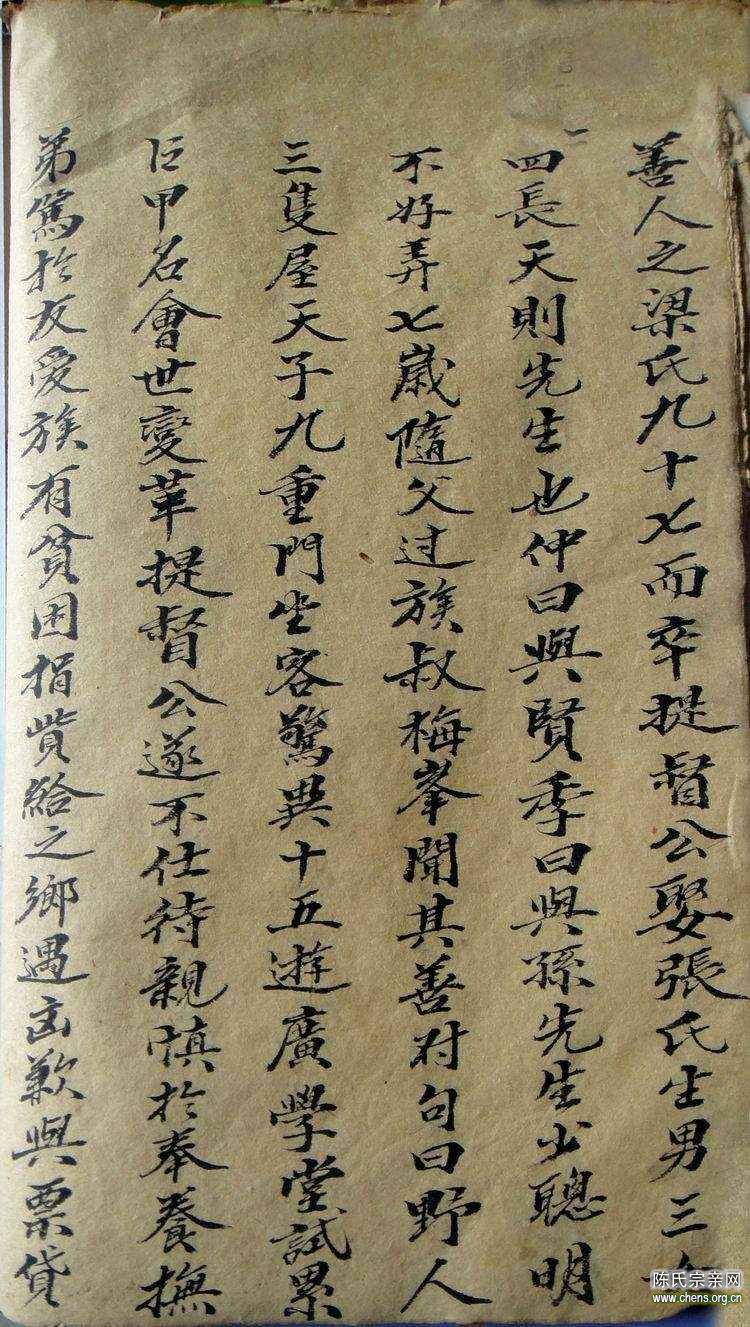 善人之梁氏九十七而卒提督公娶張氏生男三女
四長天則先生也仲曰與賢季曰與孫先生少聰明
不好弄七歲隨父过族叔梅峯聞其善对句曰野人
三隻屋天子九重門坐客驚異十五遊廣學堂試累
巨甲名會世變革提督公遂不仕待親慎於奉養撫
弟篤於友愛族有貧困捐貲給之鄉遇凶歉與票貸
陈氏宗亲网
www.chens.org.cn